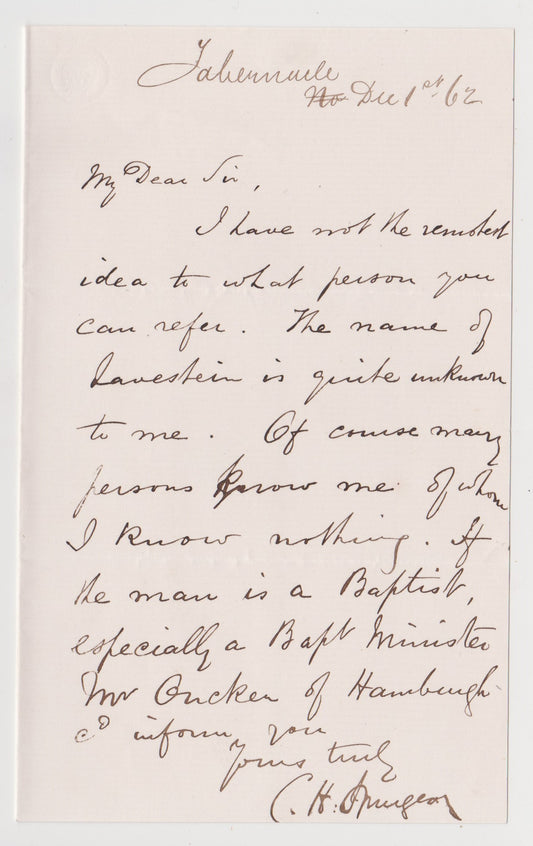 Tabernacle
No Dec 1st 62
My Dear Sir,
I have not the remotest
idea to what person you
can refer. The name of
Lavestein is quite unknown
to me. Of course many
persons know me of whom
I know nothing. If
the man is a Baptist,
especially a Bapt Minister
Mr Oncken of Hamburgh
cd inform you
Yours truly
C. H. Spurgeon